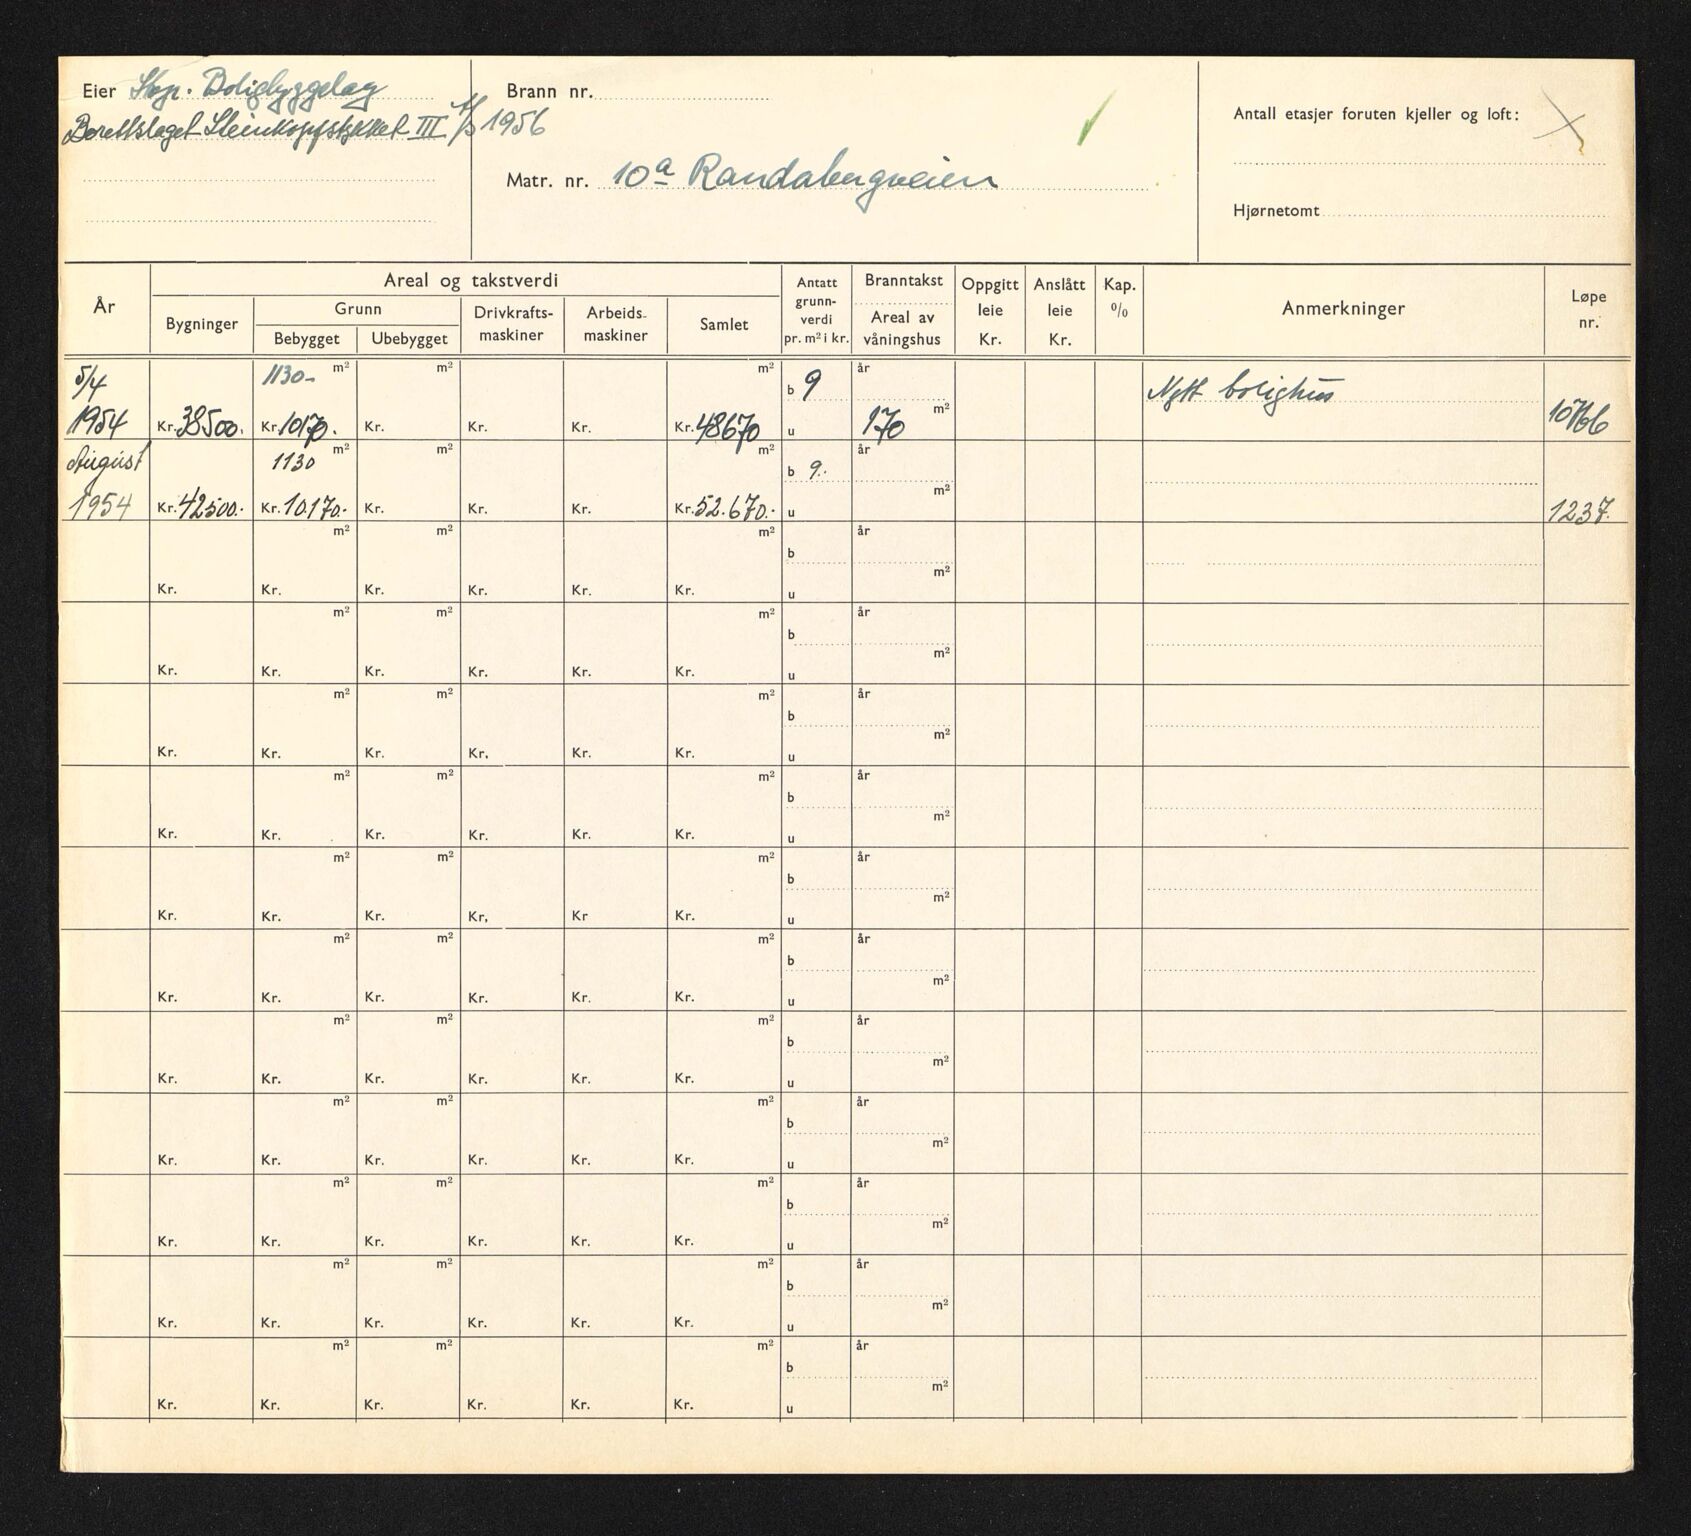 Eier Skgr. Boligbyggelag
Borettslaget Steinkopfstykket III A/S 1956
Brann nr.
Matr. nr. 10a Randabergveien
Antall etasjer foruten kjeller og loft:
Hjørnetomt
År
Areal og takstverdi
Bygninger
Grunn
Bebygget
Ubebygget
Drivkrafts-
maskiner
Arbeids-
maskiner
Samlet
Antatt
grunn-
verdi
pr. m² i kr.
Branntakst
Areal av
våningshus
Oppgitt
leie
Kr.
Anslått
leie
Kr.
Kap.
%
Anmerkninger
Løpe
nr.
5/4 1130- m² m² m² b 9 år Nytt bolighus
1954 Kr. 38500. Kr. 10170. Kr. Kr. Kr. Kr. 48670 u 170 m²
August 1130 m² m² m² b 9. år
1954 Kr. 42500.- Kr. 10.170.- Kr. Kr. Kr. Kr. 52.670.- u m² 1237.
m² m² m² b år
Kr. Kr. Kr. Kr. Kr. Kr. u m²
m² m² m² b år
Kr. Kr. Kr. Kr. Kr. Kr. u m²
m² m² m² b år
Kr. Kr. Kr. Kr. Kr. Kr. u m²
m² m² m² b år
Kr. Kr. Kr. Kr. Kr. Kr. u m²
m² m² m² b år
Kr. Kr. Kr. Kr, Kr Kr. u m²
m² m² m² b år
Kr. Kr. Kr. Kr. Kr. Kr. u m²
m² m² m² b år
Kr. Kr. Kr. Kr. Kr. Kr. u m²
m² m² m² b år
Kr. Kr. Kr. Kr. Kr. Kr. u m²
m² m² m² b år
Kr. Kr. Kr. Kr. Kr. Kr. u m²
m² m² m² b år
Kr. Kr. Kr. Kr. Kr. Kr. u m²
m² m² m² b år
Kr. Kr. Kr. Kr. Kr. Kr. u m²